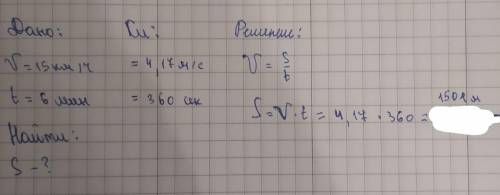 Дано:
Си:
Решение:
V = 15 км/ч
= 4,17 м/с
V = S/t
t = 6 мин
= 360 сек
S = V · t = 4,17 · 360 = 1501 м
Найти:
S - ?